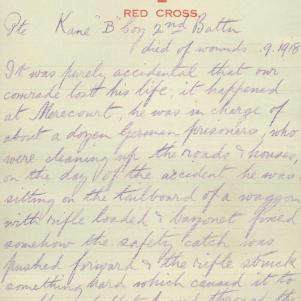 RED CROSS.
Pte Kane "B" Coy 2nd Battn
died of wounds .9.1918
It was purely accidental that our
comrade lost his life, it happened
at Merecourt, he was in charge of
about a dozen German prisoners, who
were cleaning up the roads & houses,
on the day of the accident he was
sitting on the tailboard of a waggon
with rifle loaded & bayonet fixed
somehow the safety catch was
pushed forward & the rifle struck
something hard which caused it to